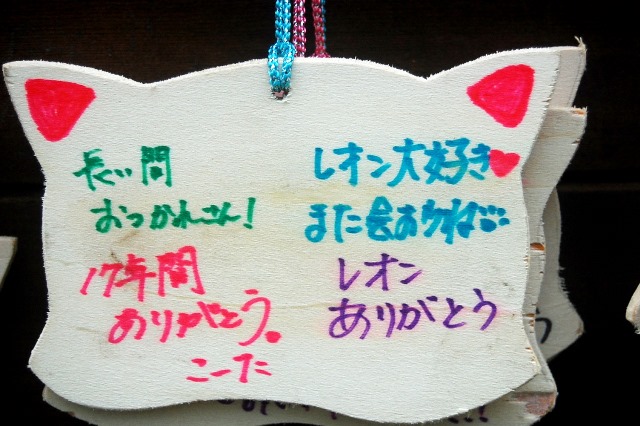 長い間
おつかれさん!
17年間
ありがとう。
こーた
レオン大好き♥
また会おうね
レオン
ありがとう